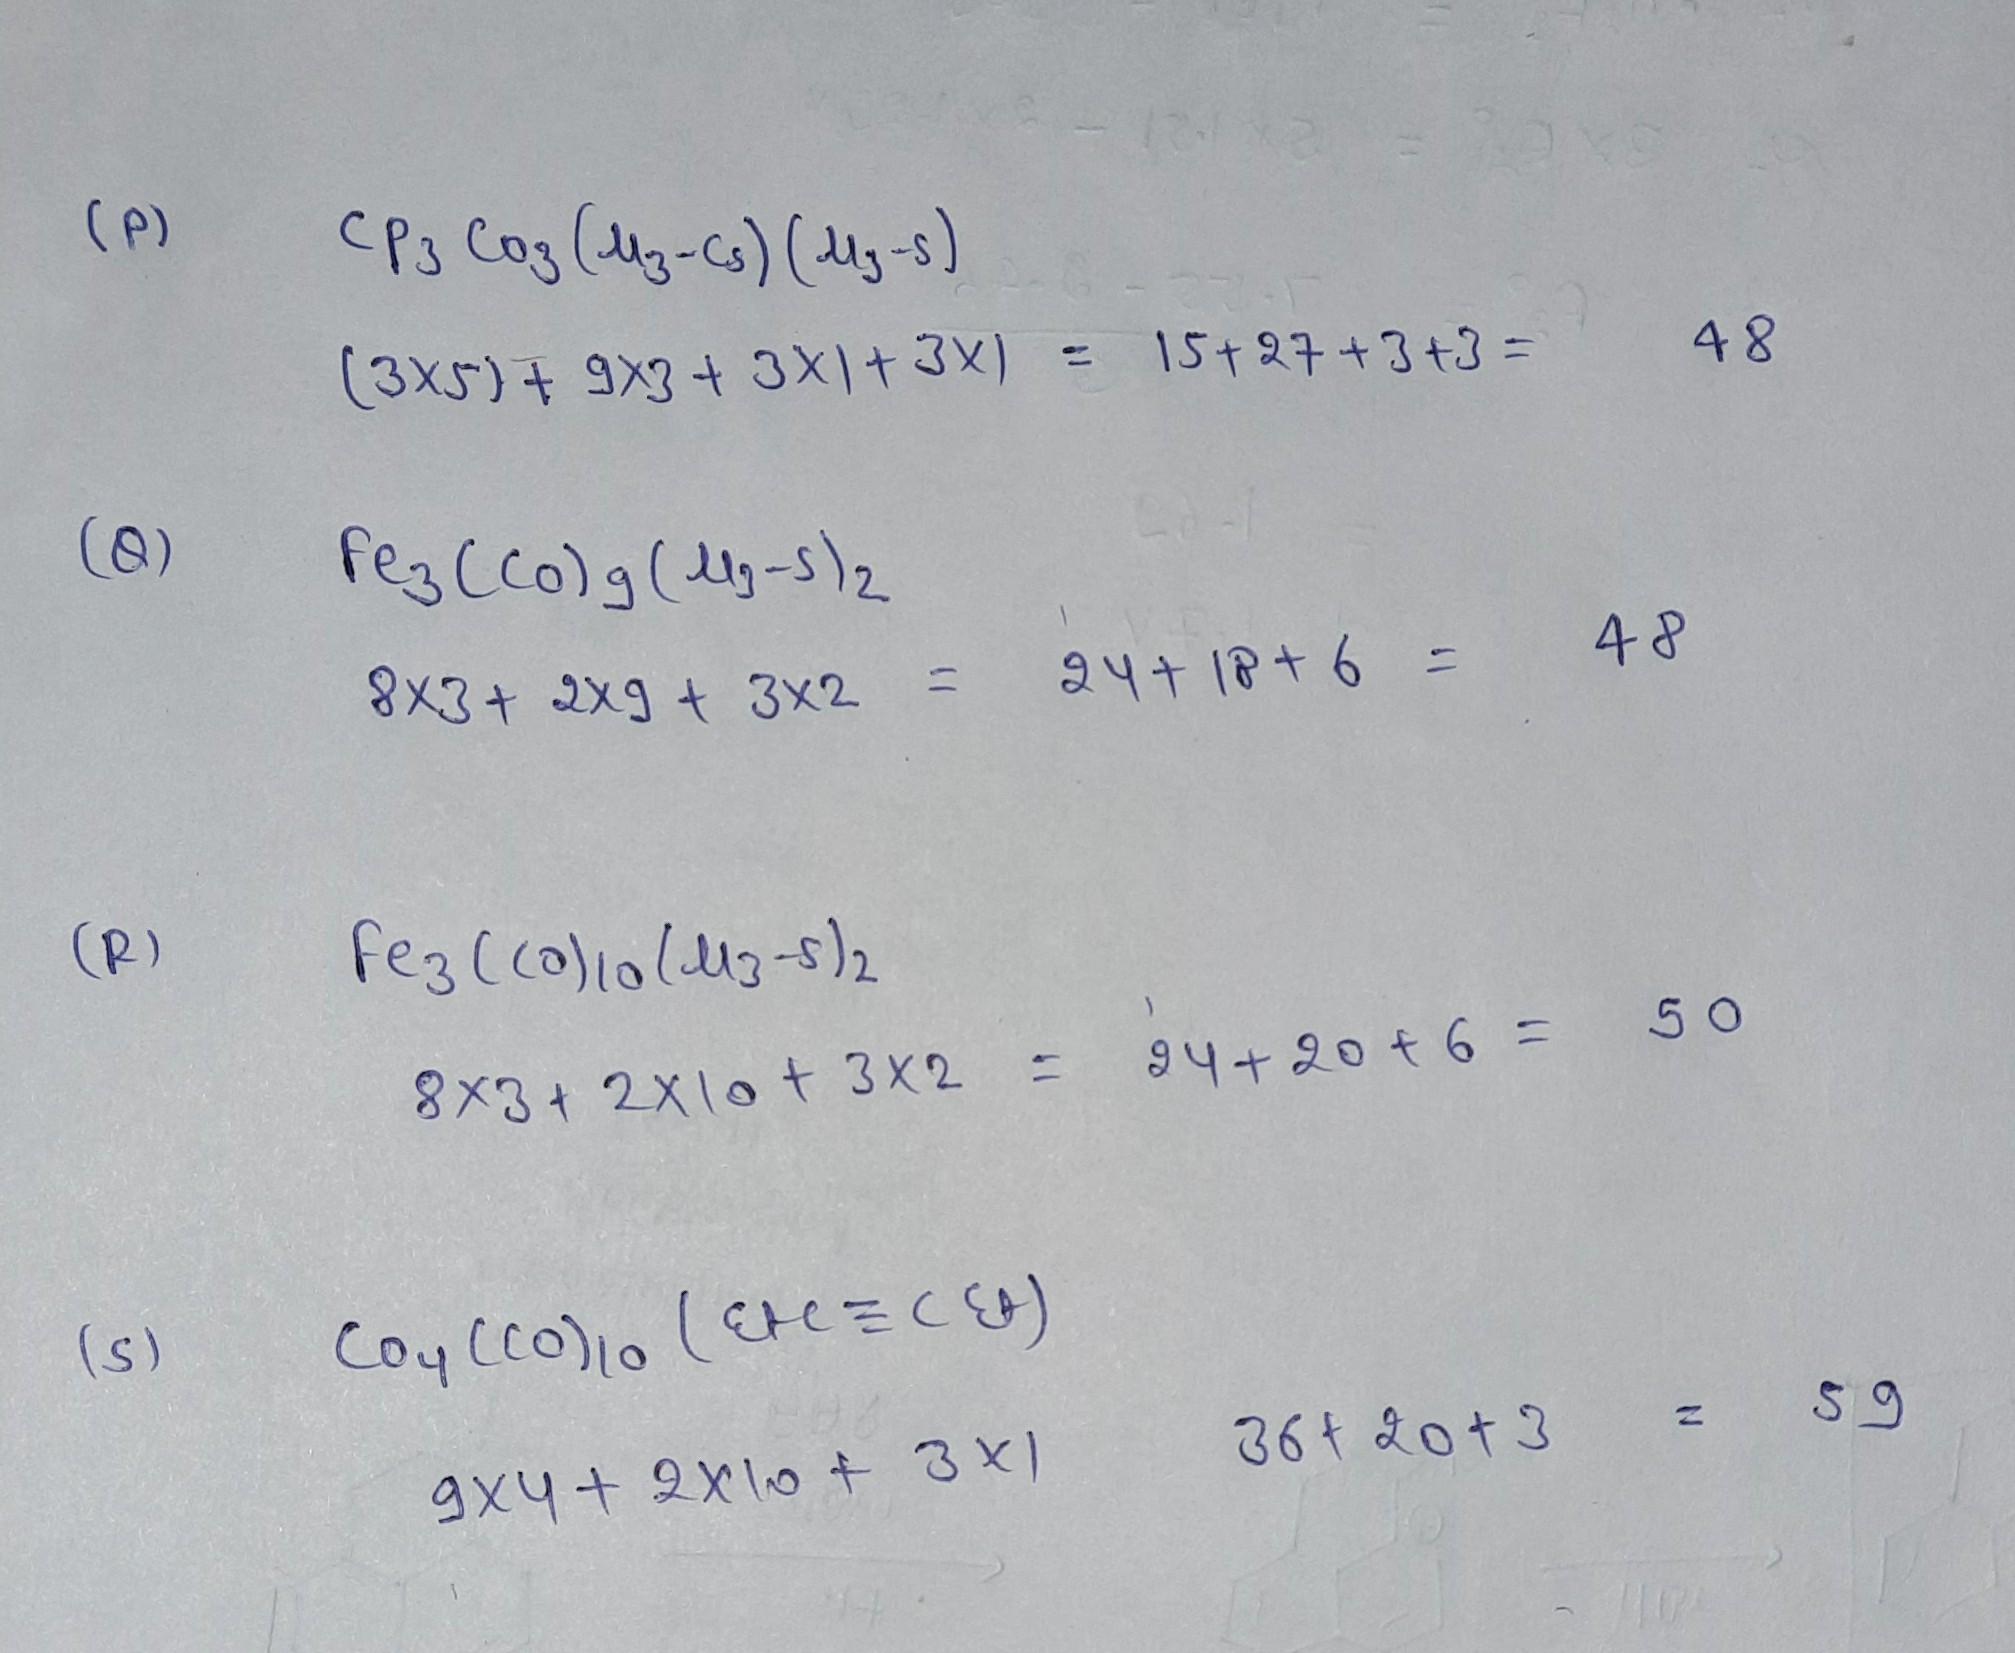 (P) CP₃ Co₃ (μ₃-Cs) (μ₃-S)
(3x5) + 9x3 + 3x1 + 3x1 = 15+27+3+3 = 48
(Q) Fe₃(CO)₉(μ₃-S)₂
8x3 + 2x9 + 3x2 = 24+18+6 = 48
(R) Fe₃(CO)₁₀(μ₃-S)₂
8x3 + 2x10 + 3x2 = 24+20+6 = 50
(S) Co₄(CO)₁₀ (EtC≡CEt)
9x4 + 2x10 + 3x1 36+20+3 = 59